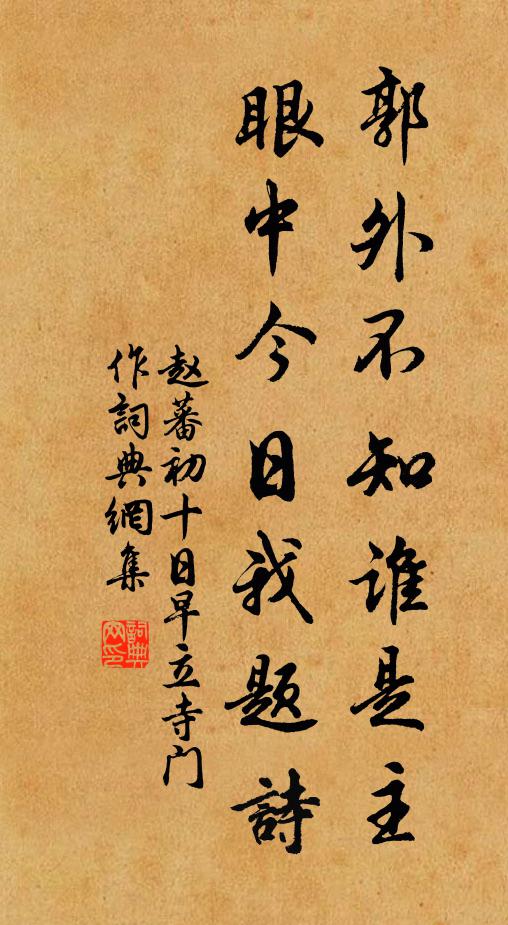 郭外不知谁是主
眼中今日我题詩
赵蕃初十日早立寺门
作詞典網集
詞典
网印